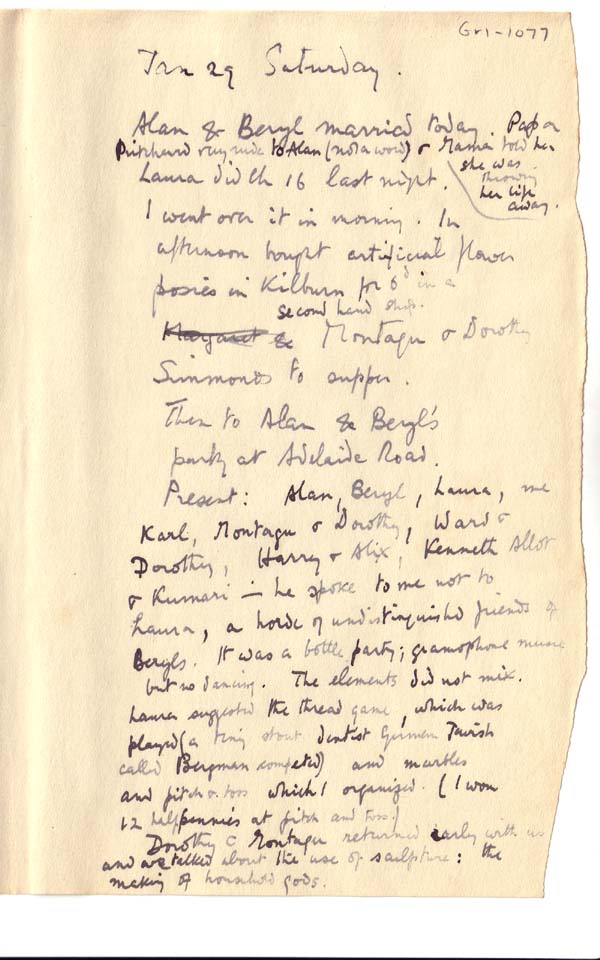 Gr1-1077
Jan 29 Saturday.
Alan & Beryl married today. Papa
Pritchard very rude to Alan (not a word) & Mama told her
she was
throwing
her life
away.
Laura did Ch 16 last night.
I went over it in morning. In
afternoon bought artificial flower
posies in Kilburn for 6d in a
second hand shop.
Margaret & Montagu & Dorothy
Simmonds to supper.
Then to Alan & Beryl's
party at Adelaide Road.
Present: Alan, Beryl, Laura, me
Karl, Montagu & Dorothy, Ward &
Dorothy, Harry & Alix, Kenneth Allot
& Kumari – he spoke to me not to
Laura, a horde of undistinguished friends of
Beryls. It was a bottle party; gramophone music
but no dancing. The elements did not mix.
Laura suggested the thread game, which was
played (a tiny stout dentist German Jewish
called Bergman competed) and marbles
and pitch & toss which I organized. (I won
12 halfpennies at pitch and toss)
Dorothy & Montagu returned early with us
and we talked about the use of sculpture: the
making of household gods.